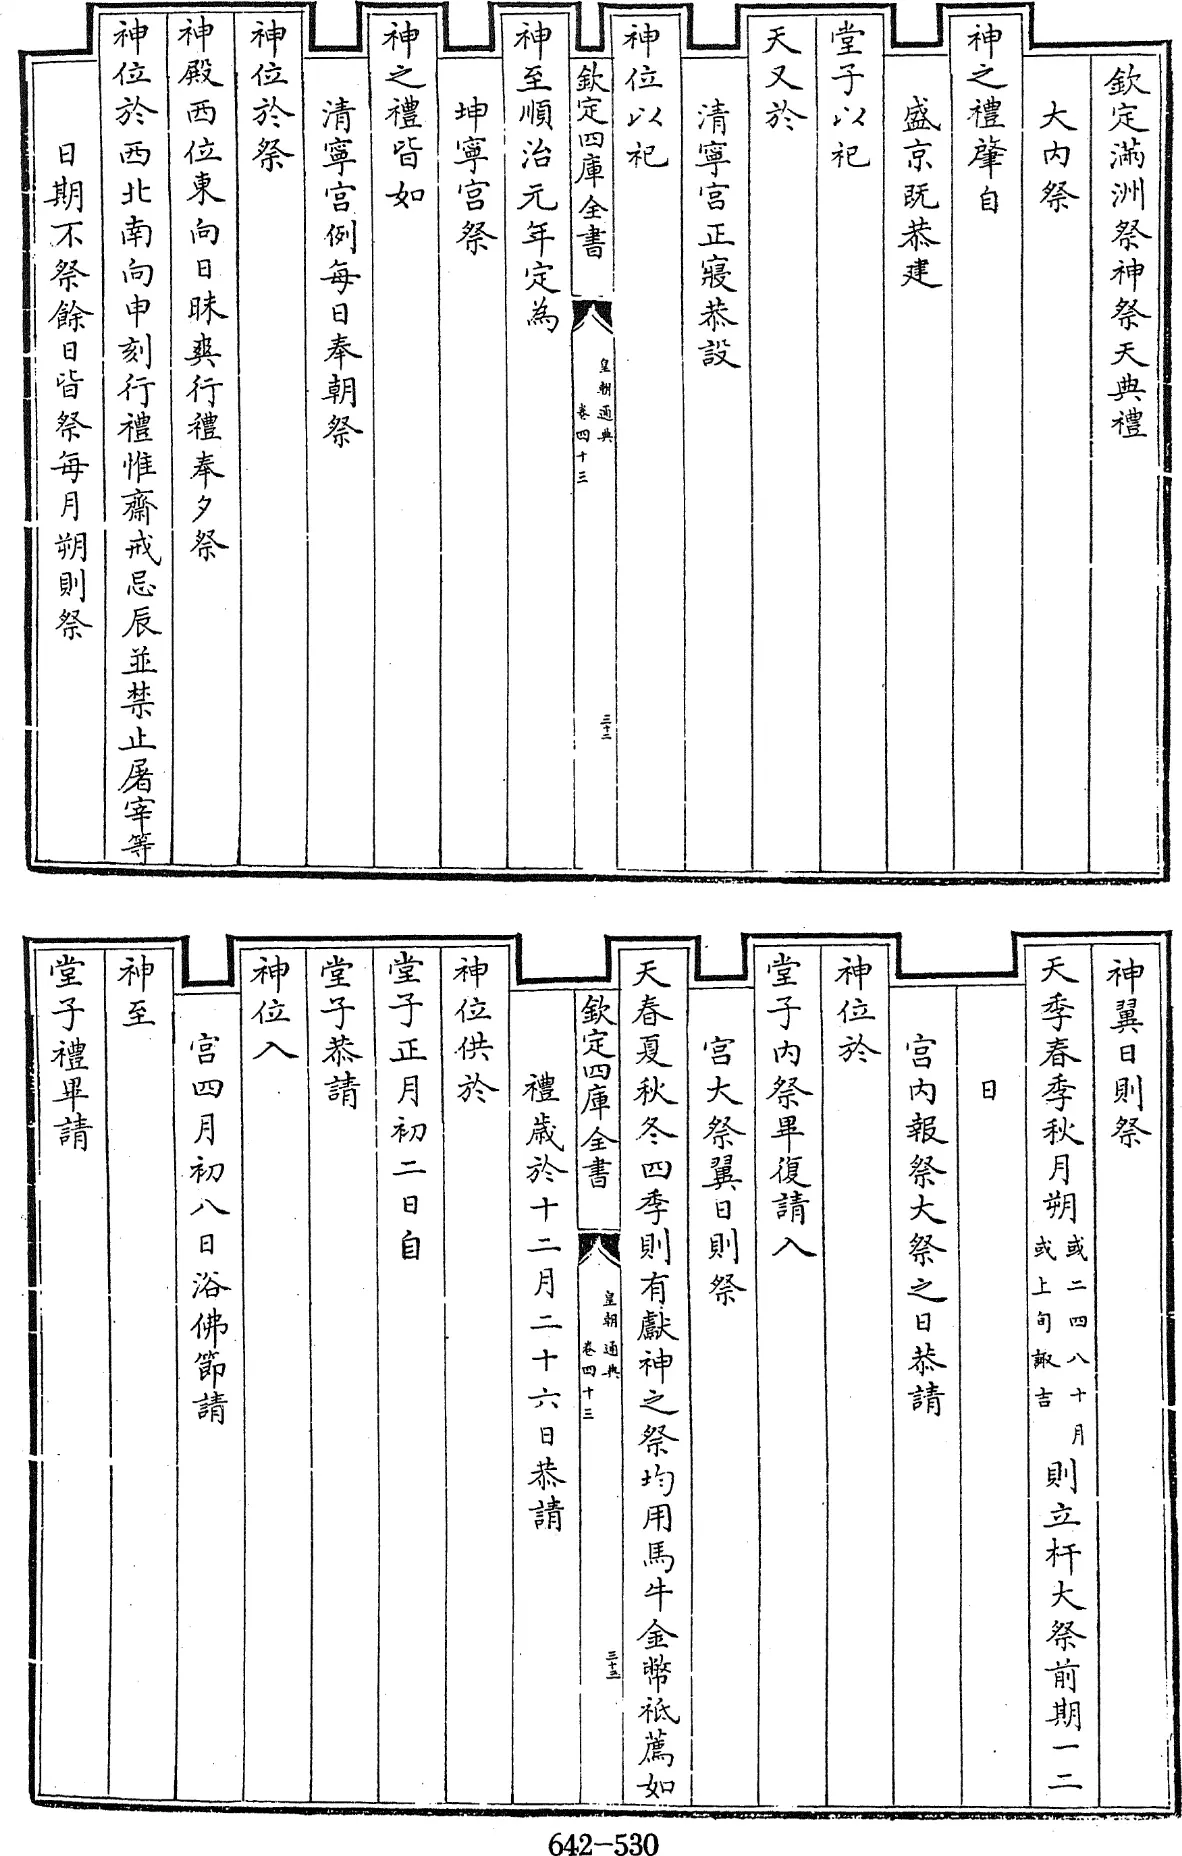 欽定滿洲祭神祭天典禮
大内祭
神之禮肇自
盛京既恭建
堂子以祀
天又於
清寧宮正寢恭設
神位以祀
欽定四庫全書
皇朝通典
卷四十三
三十二
神至順治元年定為
坤寧宮祭
神之禮皆如
清寧宮例每日奉朝祭
神位於祭
神殿西位東向日昧爽行禮奉夕祭
神位於西北南向申刻行禮惟齋戒忌辰並禁止屠宰等
日期不祭餘日皆祭每月朔則祭
神翼日則祭
天季春季秋月朔或二四八十月或上旬諏吉則立杆大祭前期一二
日
宮内報祭大祭之日恭請
神位於
堂子内祭畢復請入
宮大祭翼日則祭
天春夏秋冬四季則有獻神之祭均用馬牛金幣祗薦如
欽定四庫全書
皇朝通典
卷四十三
三十三
禮歲於十二月二十六日恭請
神位供於
堂子正月初二日自
堂子恭請
神位入
宮四月初八日浴佛節請
神至
堂子禮畢請
642-530